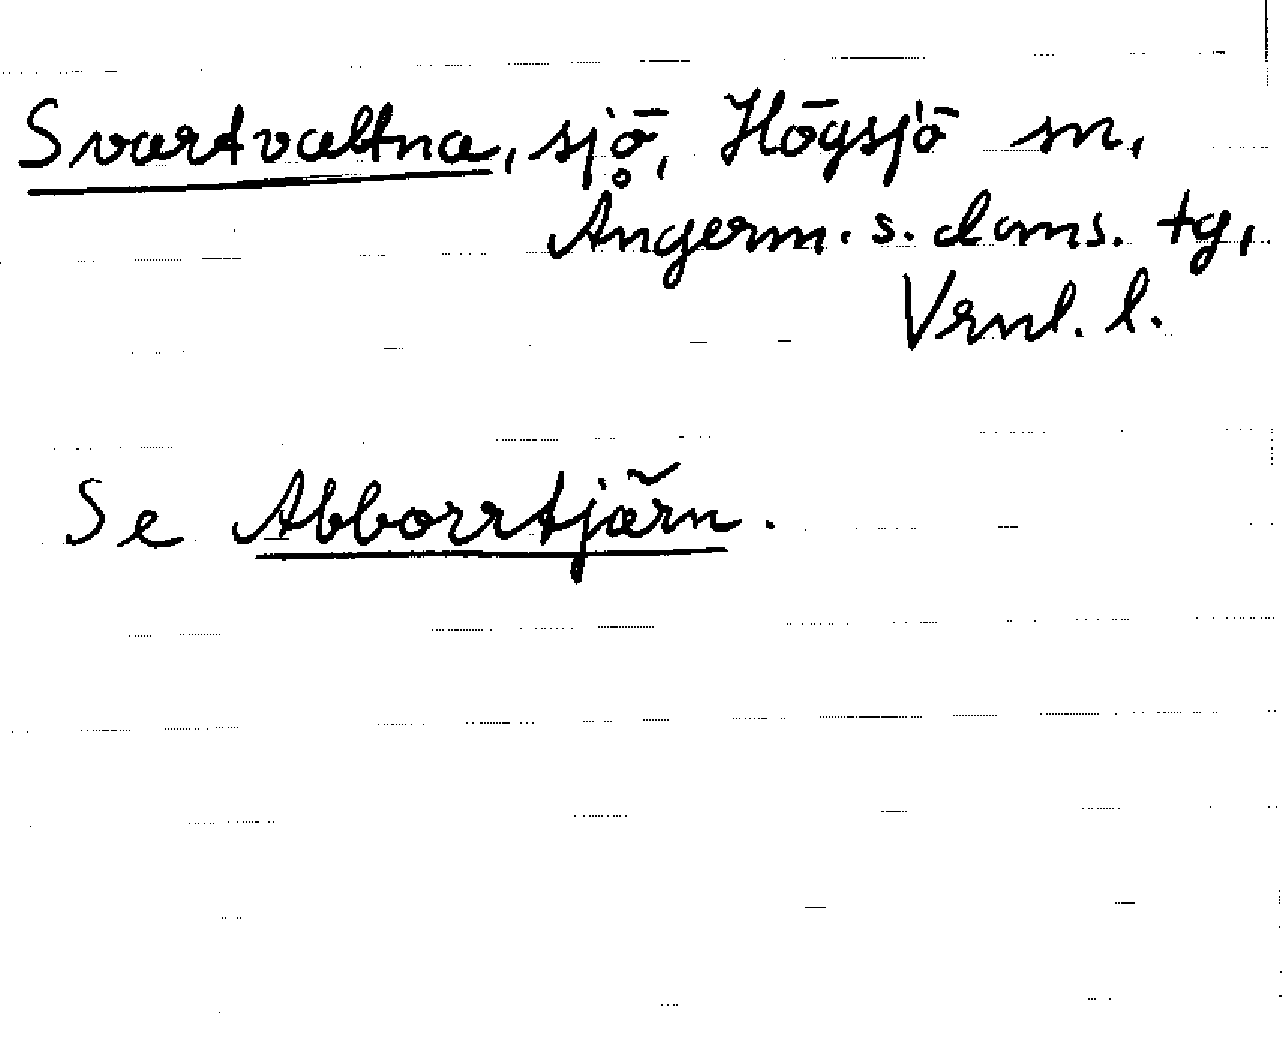 Svartvaltna, sjö, Högsjö sn,
Ångerm. s. doms. tg,
Vrnl. l.
Se Abborrtjärn.